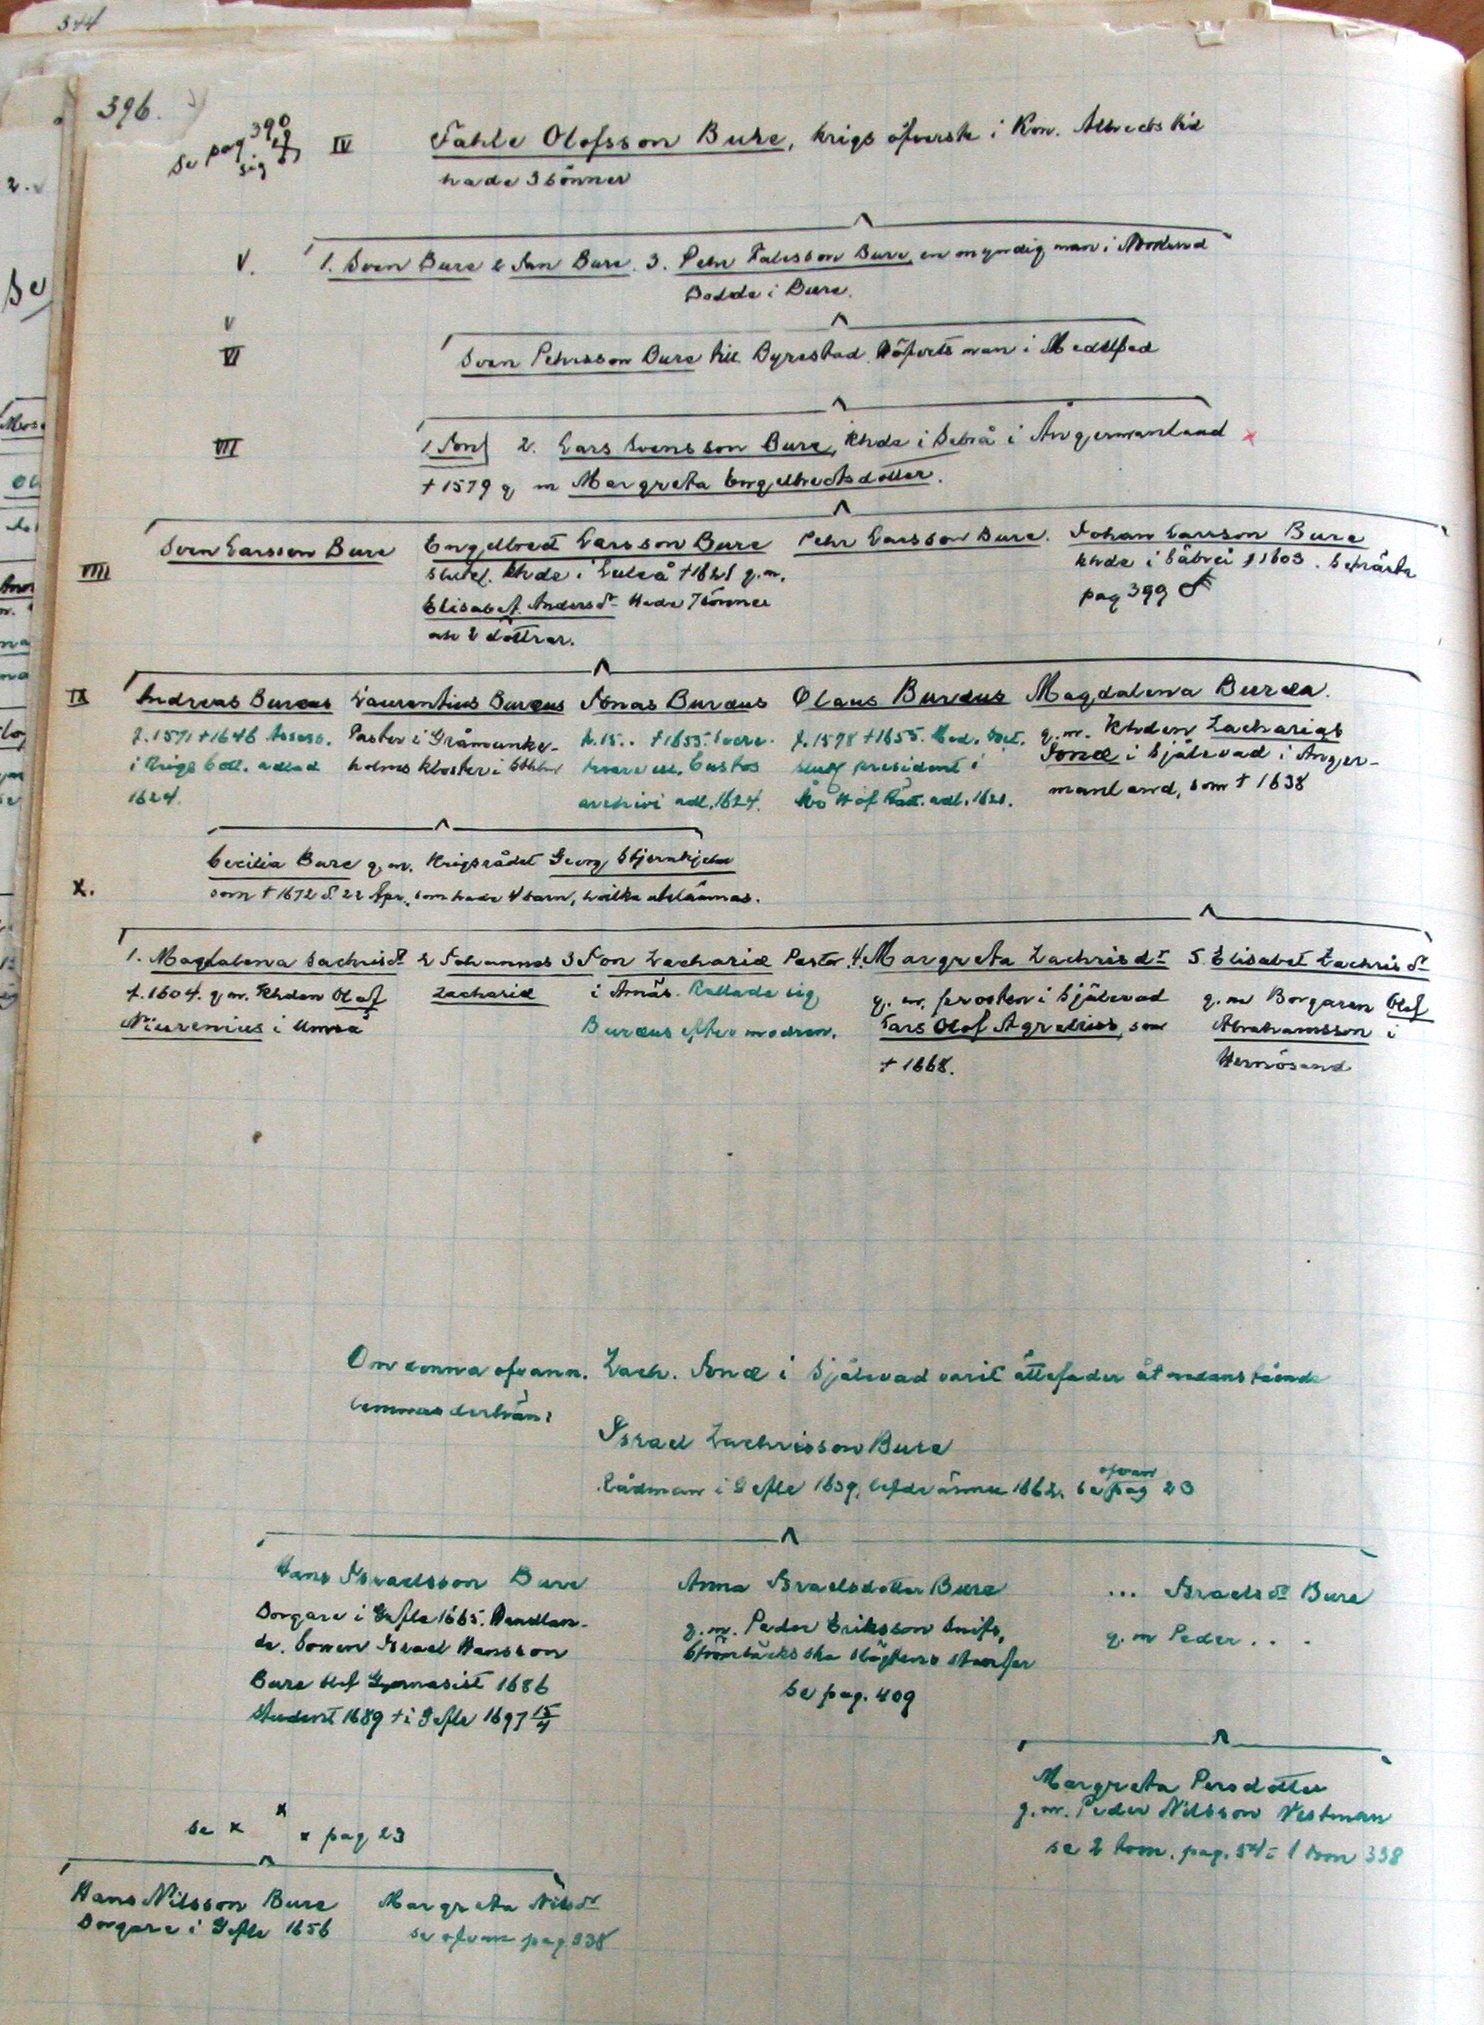 344
396.
se pag 390
sig
IV Fahle Olofsson Bure, krigs öfverste i Kon. Albrects tid
hade 3 sönner
V. 1. Sven Bure 2 Jon Bure. 3. Pehr Falesson Bure, en myndig man i Norland
Bodde i Bure.
V
VI Sven Pehrsson Bure till Byrestad. Höfvitsman i Medelpad
VII 1 Jon 2. Lars Svensson Bure, Khde i Sebrå i Ångermanland x
† 1579 g m Margreta Engelbrectsdotter.
VIII Sven Larsson Bure
Engelbrect Larsson Bure
slutl. Khde i Luleå † 1621 g.m.
Elisabet Andersdr Hade 7 sönner
och 2 döttrar.
Pehr Larsson Bure.
Johan Larsson Bure
khde i Säbrå † 1603.
pag 399
IX Andreas Buræus
f. 1571 † 1646 Assess.
i Krigs Coll. adlad
1624.
Laurentius Buræus
Pastor i Gråmunke-
holms kloster i Sthlm
Jonas Buræus
f. 15.. † 1655. Secre-
terare och Custos
archivi adl. 1624.
Olaus Buræus
f. 1578 † 1655. Med. Doct.
slutl president i
Åbo Hof Rätt. adl. 1621.
Magdalena Buræa.
g.m. Khden Zacharias
Jonæ i Själevad i Ånger-
manland, som † 1638
X. Cecilia Bure g.m. Krigsrådet Georg Stjernhjelm
som † 1672 d. 22 Apr., som hade 4 barn, hvilka utelämnas.
1. Magdalena Zachrisdr
f. 1604. g m. Khden Olof
Niurenius i Umeå
2 Johannes
Zachariæ
3 Jon Zachariæ Pastor
i Arnäs. Kallade sig
Buræus efter modren.
4. Margreta Zachrisdr
g. m. prosten i Själevad
Lars Olof Agrelius, som
† 1668.
5. Elisabet Zachrisdr
g.m Borgaren Olof
Abrahamsson i
Hernösand
Om denna ofvann. Zach. Jonæ i Själevad varit ättefader åt nedanstående
lemnas derhän:
Israel Zachrisson Bure
Rådman i Gefle 1639, lefde ännu 1662. se ofvan pag 23
Hans Israelsson Bure
Borgare i Gefle 1665. Handlan-
de. Sonen Israel Hansson
Bure blef Gymnasist 1686
Student 1689 † i Gefle 1697 15/4
Anna Israelsdotter Bure
g.m. Peder Eriksson Snifs,
Strömbäckska slägtens stamfar
se pag. 409
... Israelsdr Bure
g. m Peder . . .
Margreta Persdotter
g.m. Peder Nilsson Vestman
se 2 tom. pag. 54 i 1 tom 338
se x x x pag 23
Hans Nilsson Bure
Borgare i Gefle 1656
Margreta Nilsdr
se ofvan pag. 338